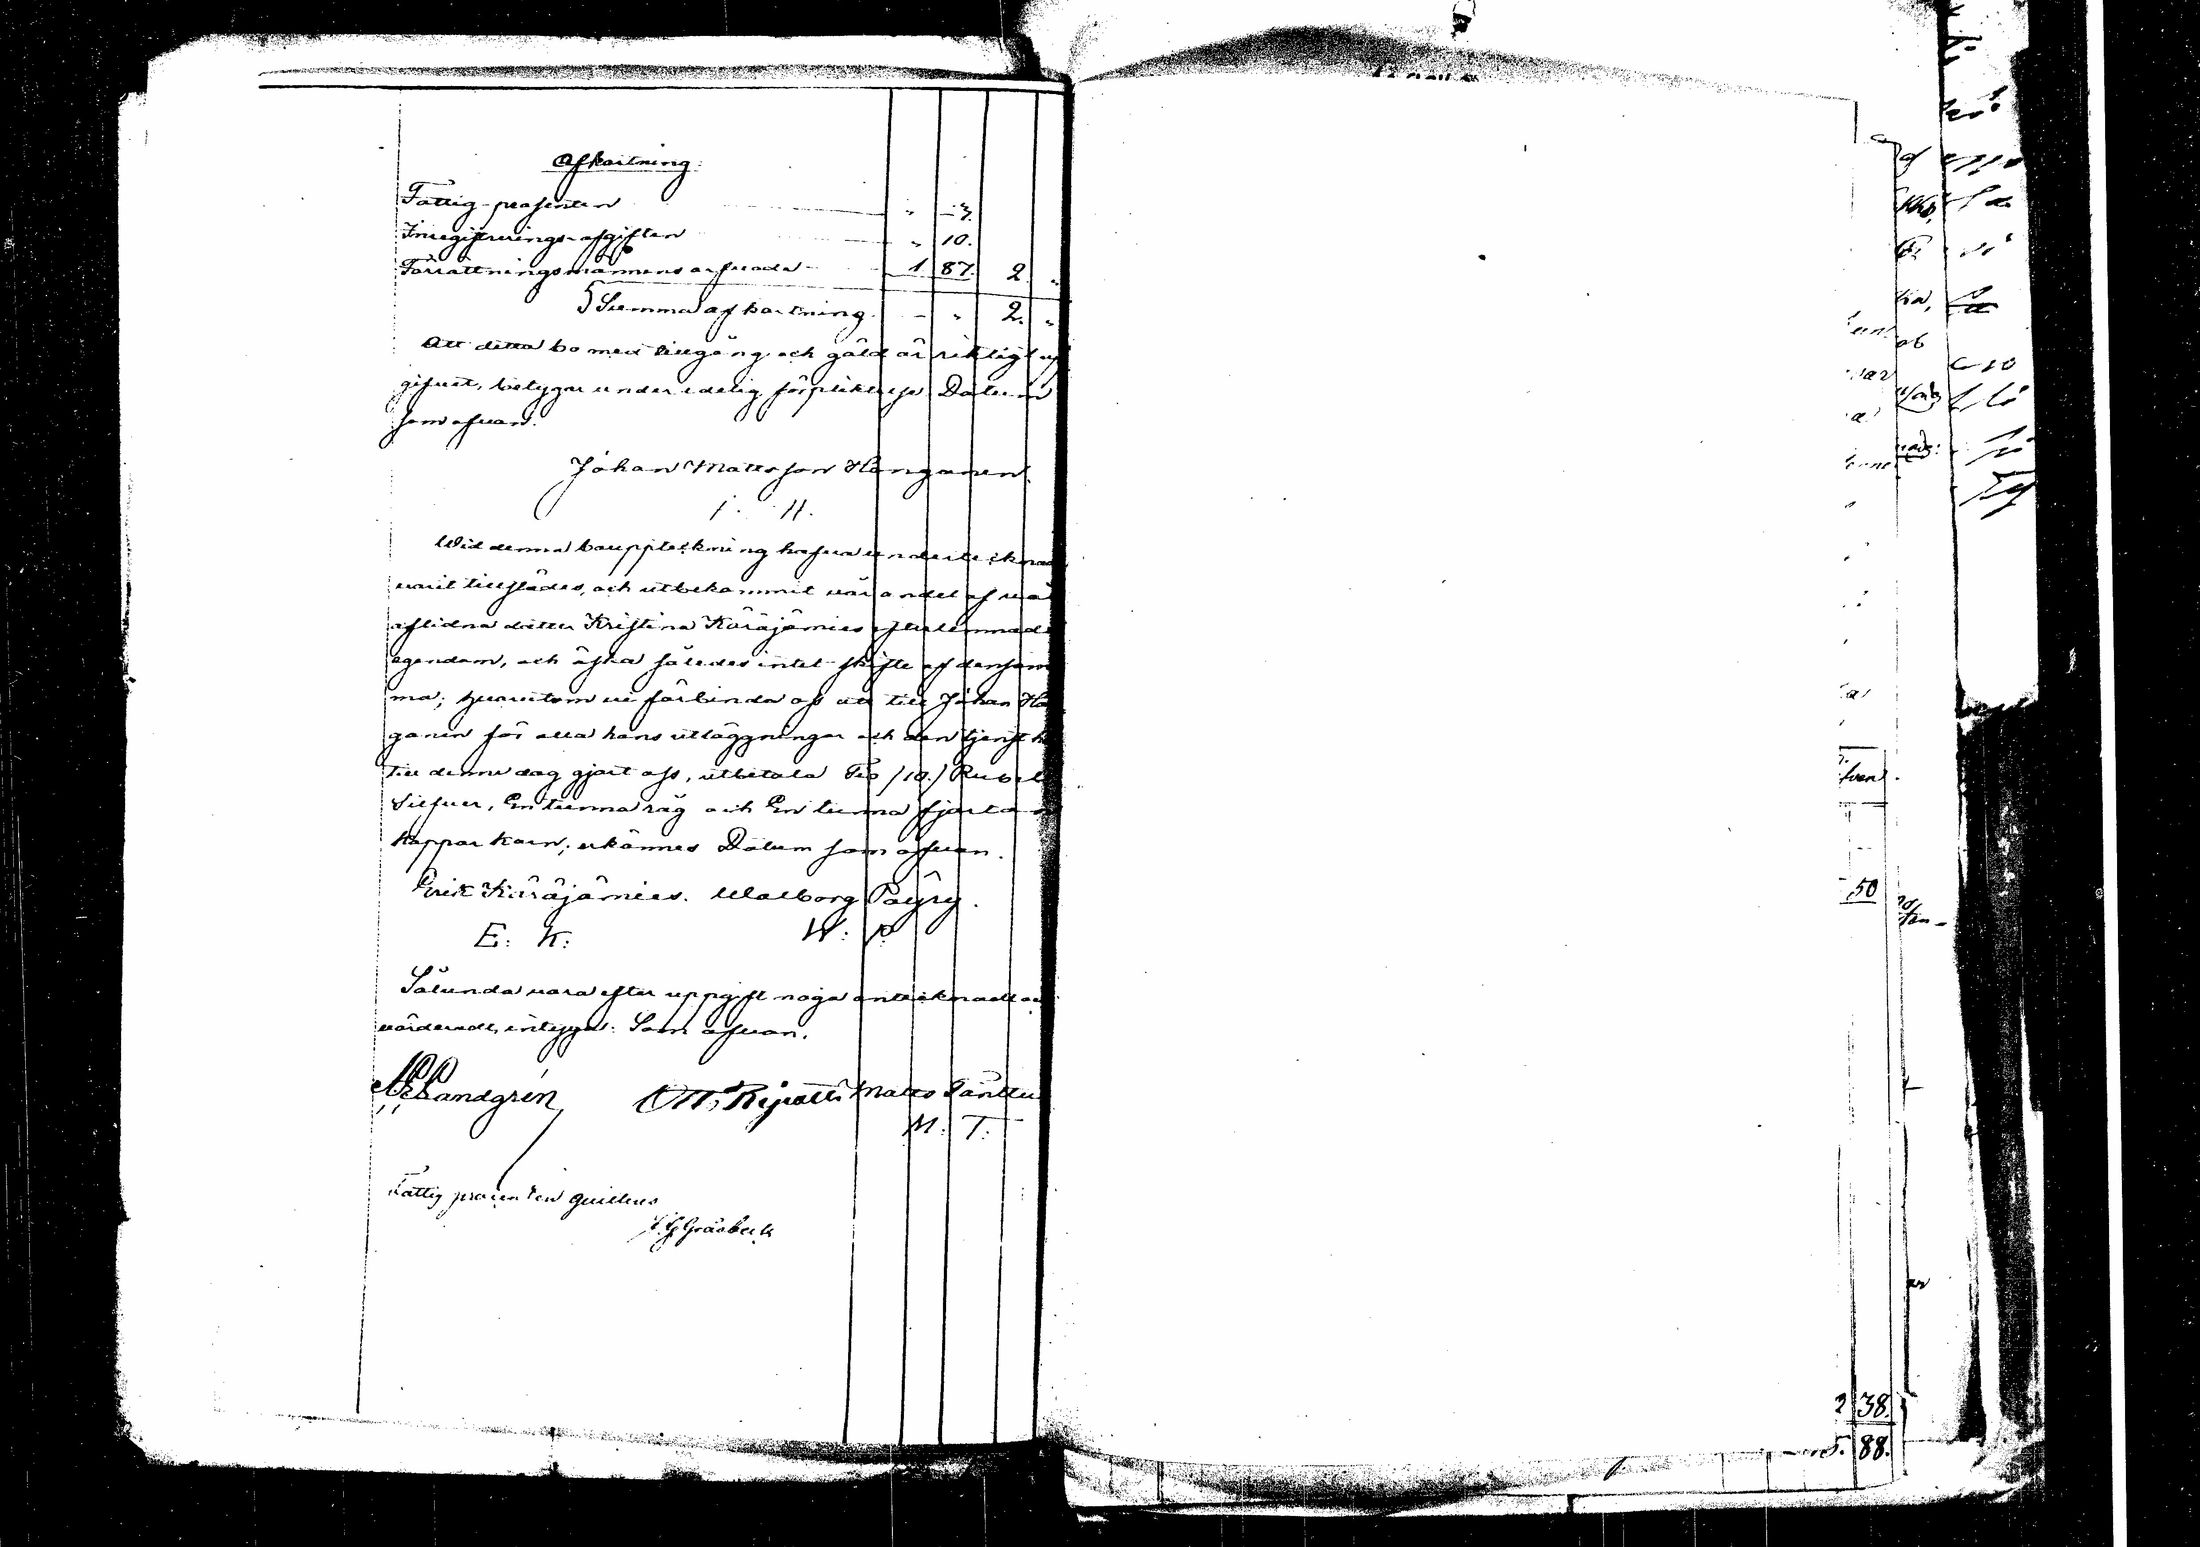 Afkortning:
Fattig-procenten " 3.
Inregistrerings-afgiften " 10.
Förrättningsmännens arfvode 1 87. 2 "
Summa afkortning - " 2. "
Att detta bo med tillgång och gäld är riktigt up
gifvet, betygar under edelig förpliktelse Datum
som ofvan.
Johan Mattsson Honganen
I. H.
Wid denna bouppteckning hafva undertecknad
varit tillstädes, och utbekommit vår andel af vår
aflidna dotter Kristina Käräjämies efterlemnade
egendom, och äska således intet skifte af densam
ma; hvarutom vi förbinda oss att till Johan Ho
ganen för alla hans utläggningar och den tjenst h
till denne dag gjort oss, utbetala Tio /10./ Rubel
Silfver, En tunna råg och En tunna fjorton
kappar korn; erkännes Datum som ofvan.
Erik Käräjämies. Walborg Päyry.
E: K: W: P
Sålunda vara efter uppgift noga antecknadt oc
värderadt, intygga: Som ofvan.
Sandgrén Matts Tänttu
M: T:
Fattig procenten quitteras
Gråsbeck
50
2 38.
5. 88.